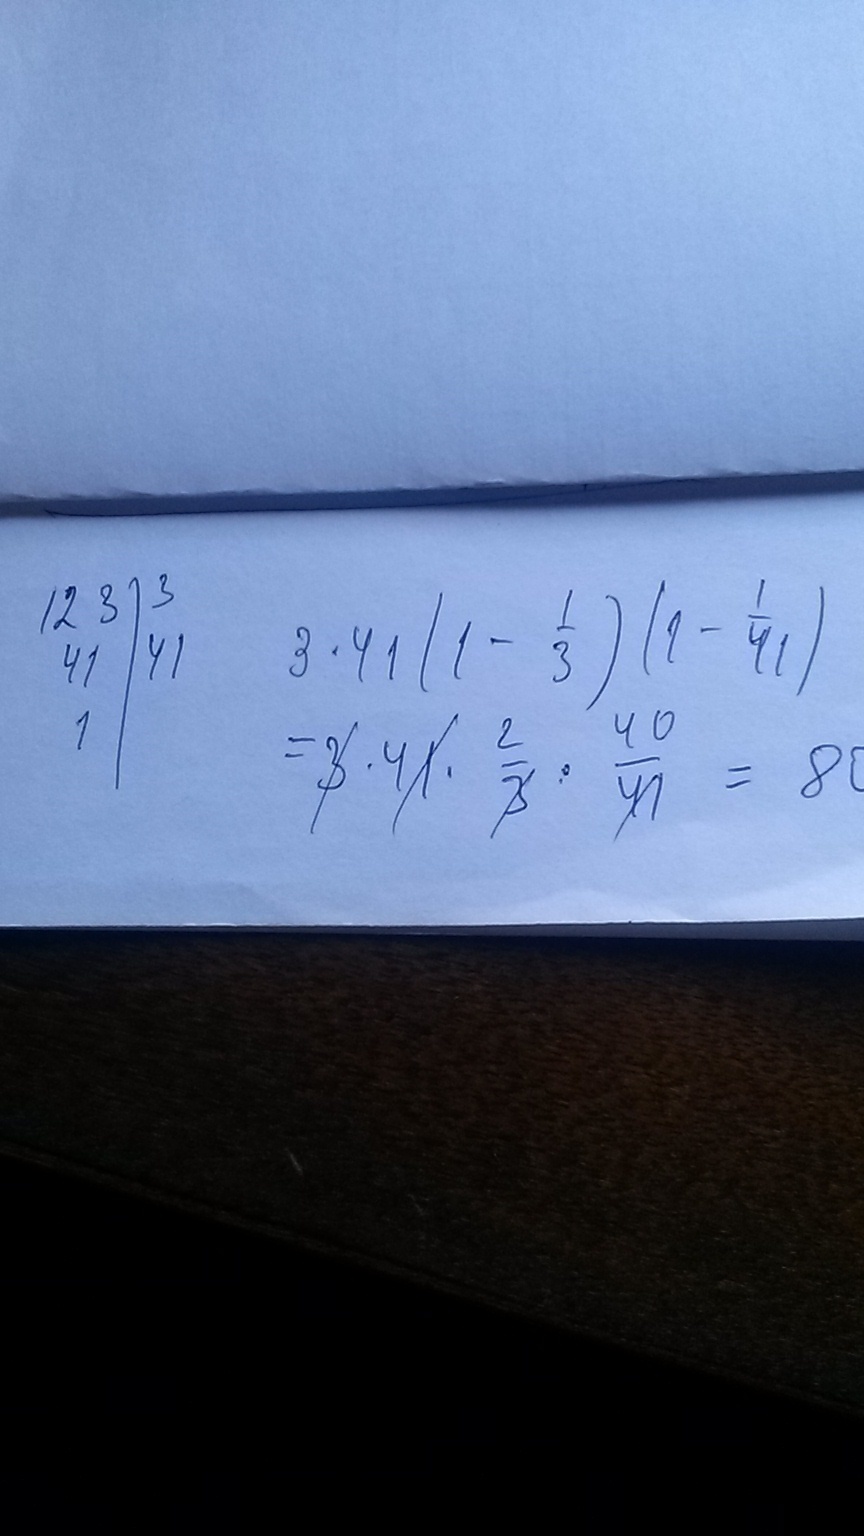 123 | 3
41 | 41
1 |
3 · 41 (1 - 1/3) (1 - 1/41)
= 3 · 41 · 2/3 · 40/41 = 80